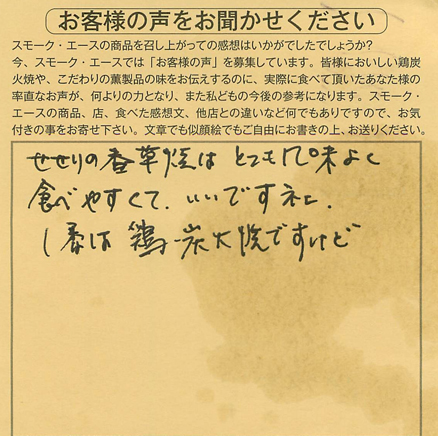 お客様の声をお聞かせください
スモーク・エースの商品を召し上がっての感想はいかがでしたでしょうか?
今、スモーク・エースでは「お客様の声」を募集しています。皆様においしい鶏炭
火焼や、こだわりの薫製品の味をお伝えするのに、実際に食べて頂いたあなた様の
率直なお声が、何よりの力となり、また私どもの今後の参考になります。スモーク・
エースの商品、店、食べた感想文、他店との違いなど何でもありですので、お気
付きの事をお寄せ下さい。文章でも似顔絵でもご自由にお書きの上、お送りください。
せせりの香草焼は とても風味よく
食べやすくて、いいですネ。
1番は 鶏炭火焼ですけど